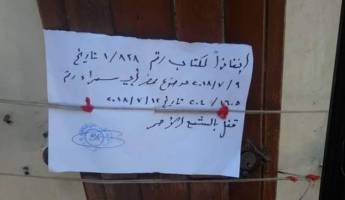 إنفاذاً لكتاب رقم ١/٨٢٨ تاريخ
٢٠١٨/٧/٩ موضوع محضر أبي سمراء رقم
٢٠٤/١٦٠٥ تاريخ ٢٠١٨/٧/١٢
قفل بالشمع الأحمر